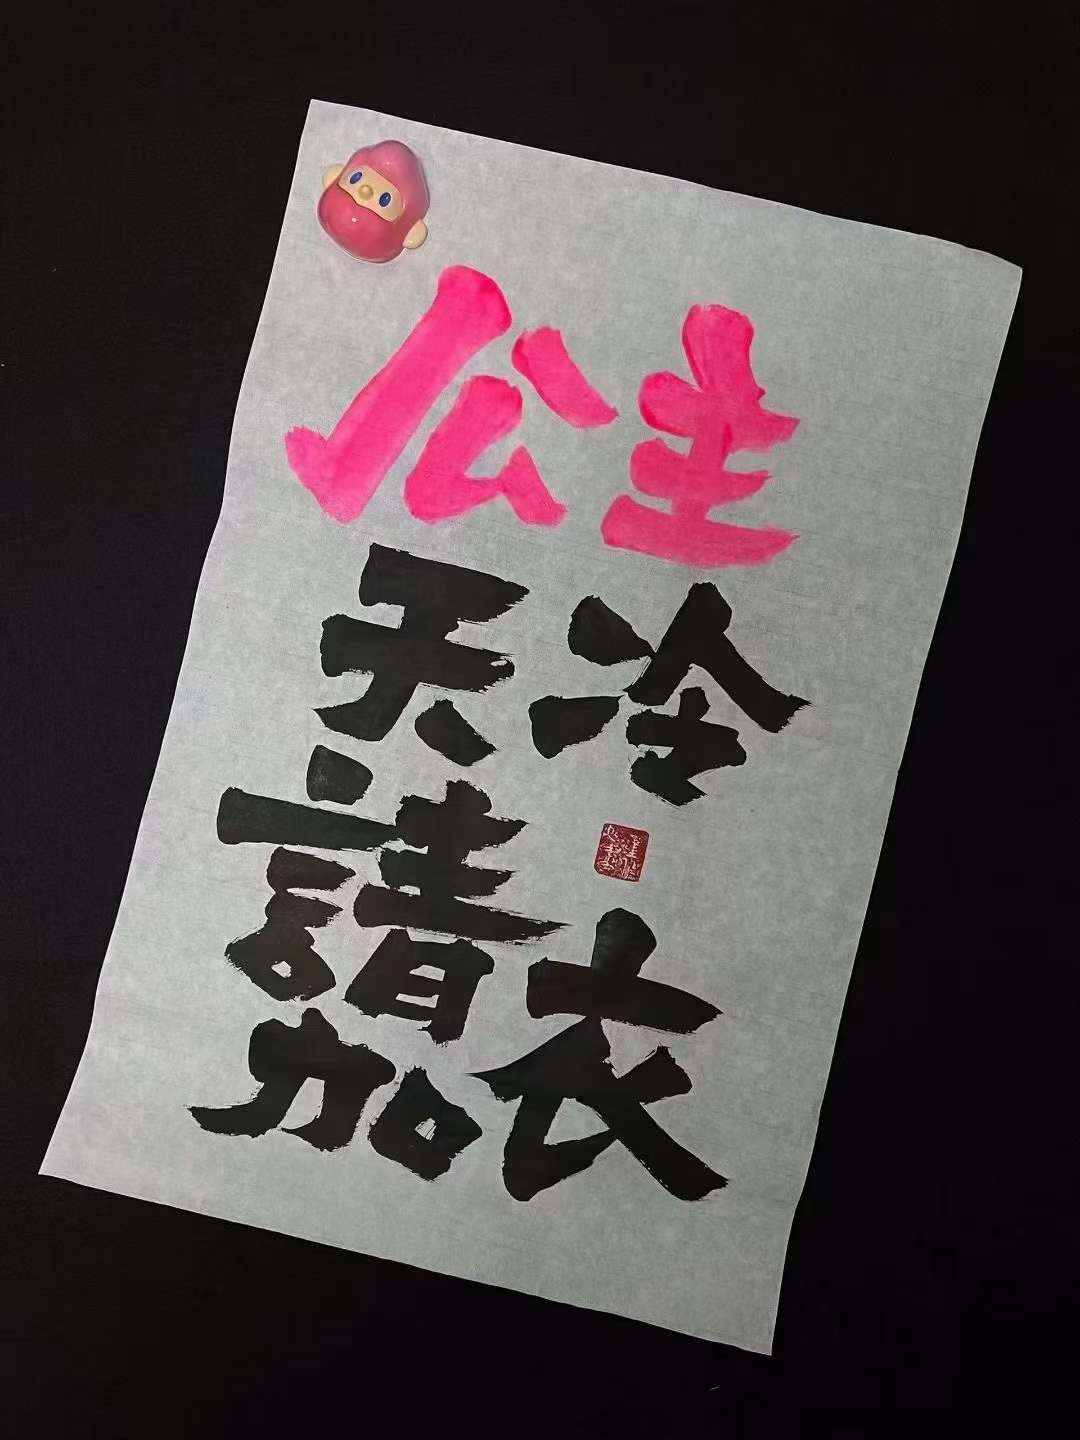 公主
天冷
請加衣